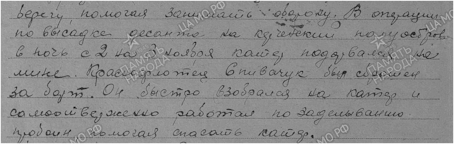 берегу, помогая занимать оборону. В операции
по высадке десанта на керченский полуостров
в ночь с 2 на 3 ноября катер подорвался на
мине. Краснофлотец Спивачук был сброшен
за борт. Он быстро взобрался на катер и
самоотверженно работал по заделыванию
пробоин помогая спасать катер.